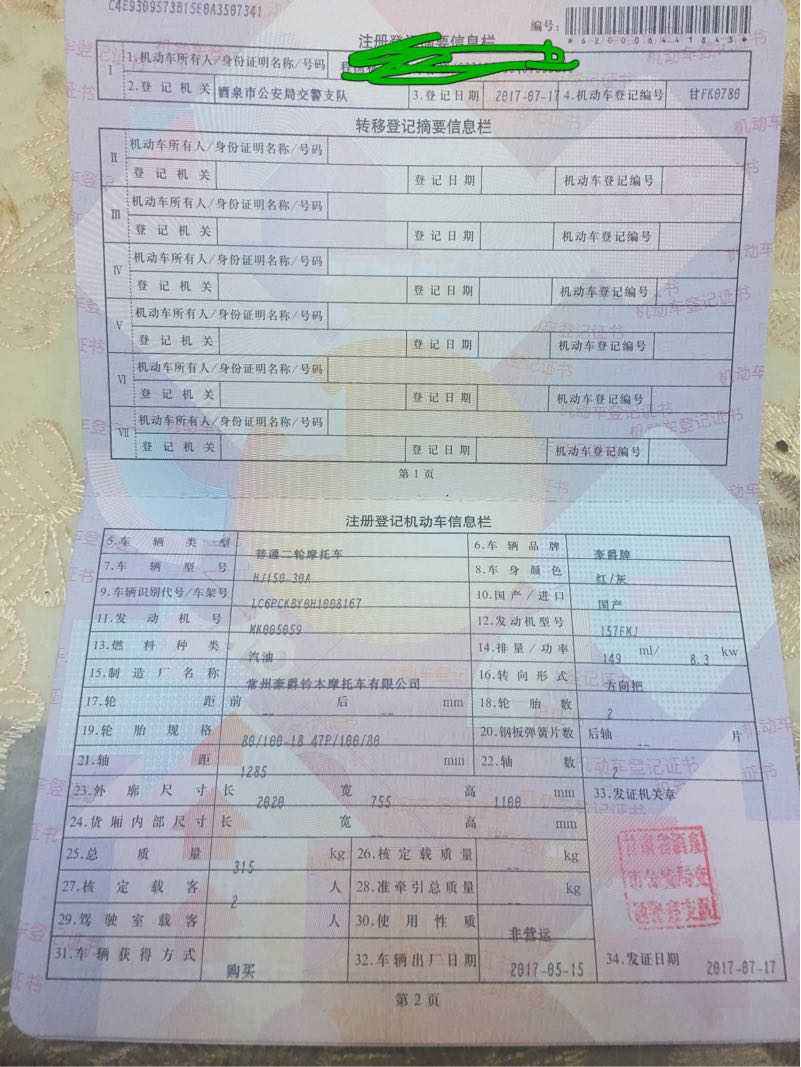 C4E9309573B15E0A3507341
编号:
*620006441843*
注册登记摘要信息栏
Ⅰ 1.机动车所有人/身份证明名称/号码
2.登记机关 酒泉市公安局交警支队 3.登记日期 2017-07-17 4.机动车登记编号 甘FK0780
转移登记摘要信息栏
Ⅱ 机动车所有人/身份证明名称/号码
登记机关 登记日期 机动车登记编号
Ⅲ 机动车所有人/身份证明名称/号码
登记机关 登记日期 机动车登记编号
Ⅳ 机动车所有人/身份证明名称/号码
登记机关 登记日期 机动车登记编号
Ⅴ 机动车所有人/身份证明名称/号码
登记机关 登记日期 机动车登记编号
Ⅵ 机动车所有人/身份证明名称/号码
登记机关 登记日期 机动车登记编号
Ⅶ 机动车所有人/身份证明名称/号码
登记机关 登记日期 机动车登记编号
第1页
注册登记机动车信息栏
5.车辆类型 普通二轮摩托车 6.车辆品牌 豪爵牌
7.车辆型号 HJ150-30A 8.车身颜色 红/灰
9.车辆识别代号/车架号 LC6PCKBY0H1008167 10.国产/进口 国产
11.发动机号 MK005059 12.发动机型号 157FMJ
13.燃料种类 汽油 14.排量/功率 149 ml/ 8.3 kw
15.制造厂名称 常州豪爵铃木摩托车有限公司 16.转向形式 方向把
17.轮距 前 -- 后 -- mm 18.轮胎数 2
19.轮胎规格 80/100-18 47P/100/80 20.钢板弹簧片数 后轴 -- 片
21.轴距 1285 mm 22.轴数 2
23.外廓尺寸 长 2020 宽 755 高 1100 mm 33.发证机关章
24.货厢内部尺寸 长 宽 高 mm
25.总质量 315 kg 26.核定载质量 -- kg
27.核定载客 2 人 28.准牵引总质量 -- kg
29.驾驶室载客 人 30.使用性质 非营运
31.车辆获得方式 购买 32.车辆出厂日期 2017-05-15 34.发证日期 2017-07-17
第2页